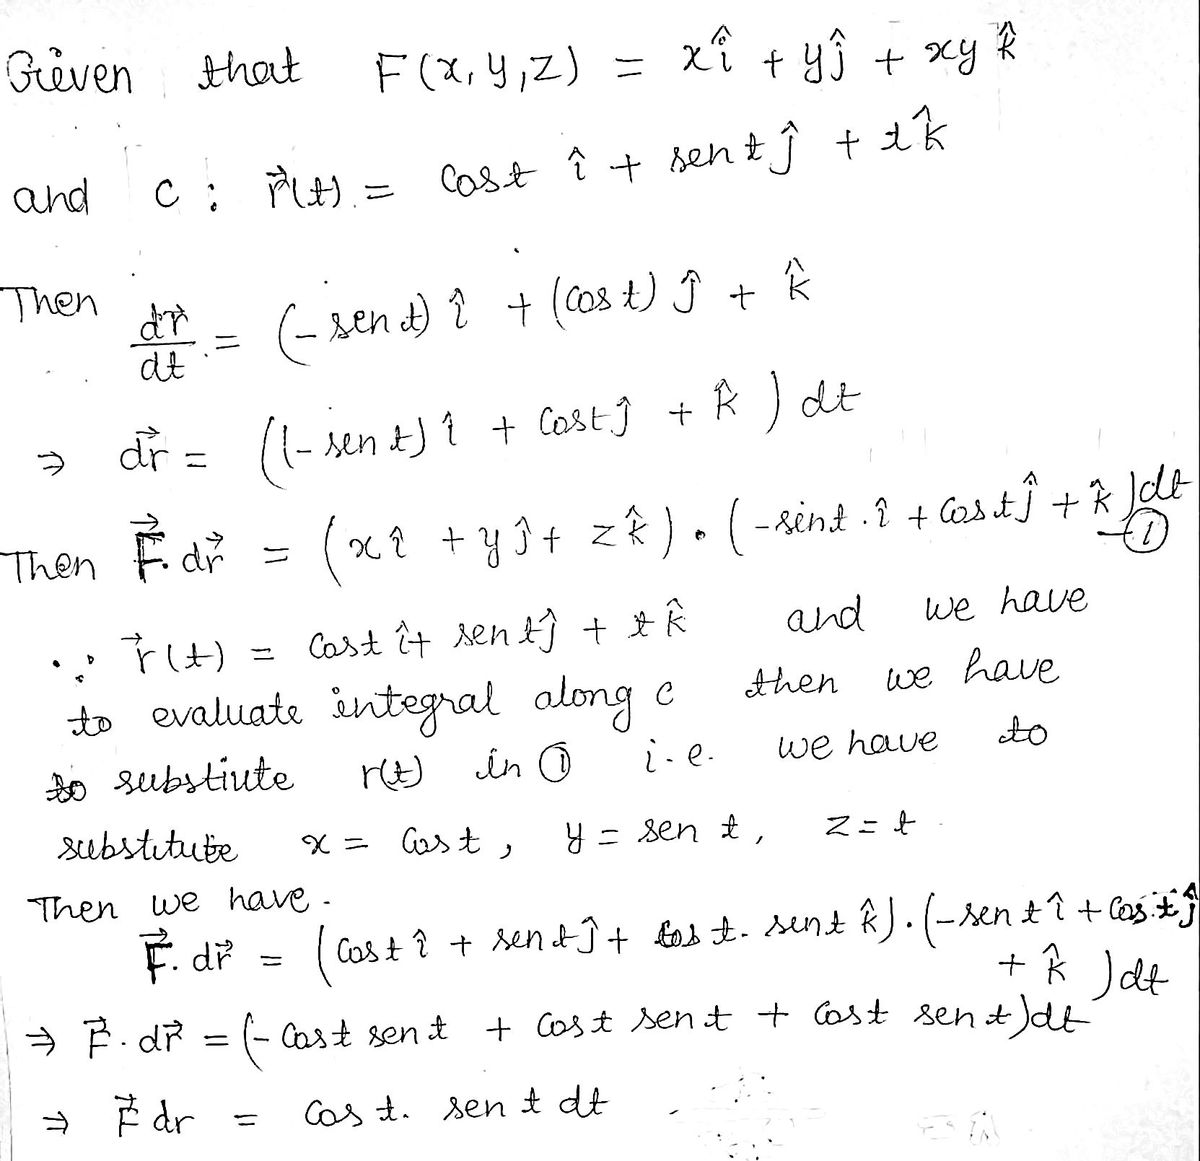 Given that F(x,y,z) = xî + yĵ + xy k̂
and c : r⃗(t) = cost î + sent ĵ + t k̂
Then dr⃗/dt = (-sent) î + (cost) ĵ + k̂
⇒ dr⃗ = ((-sent) î + cost ĵ + k̂ ) dt
Then F⃗. dr⃗ = (x î + y ĵ + z k̂) • (-sint . î + cost ĵ + k̂ )dt —①
∵ r⃗(t) = cost î + sent ĵ + t k̂ and we have
to evaluate integral along c then we have
to substiute r(t) in ① i.e. we have to
substitute x = cost , y = sen t , z = t
Then we have.
F⃗. dr⃗ = (cost î + sent ĵ + cos t. sent k̂) . (-sent î + cos.t ĵ
+ k̂ )dt
⇒ F⃗. dr⃗ = (- cost sent + cost sent + cost sent)dt
⇒ F⃗ dr = cos t. sen t dt